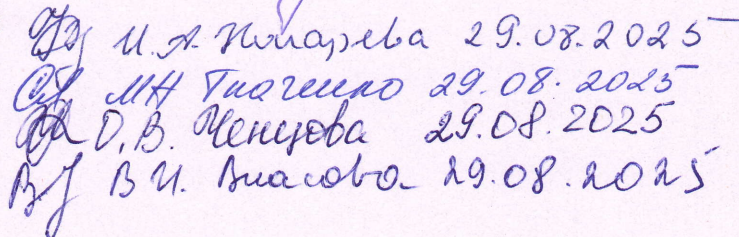 И.А. Кокарева 29.08.2025
МН Ткаченко 29.08.2025
О.В. Ченцова 29.08.2025
В.И. Власова 29.08.2025